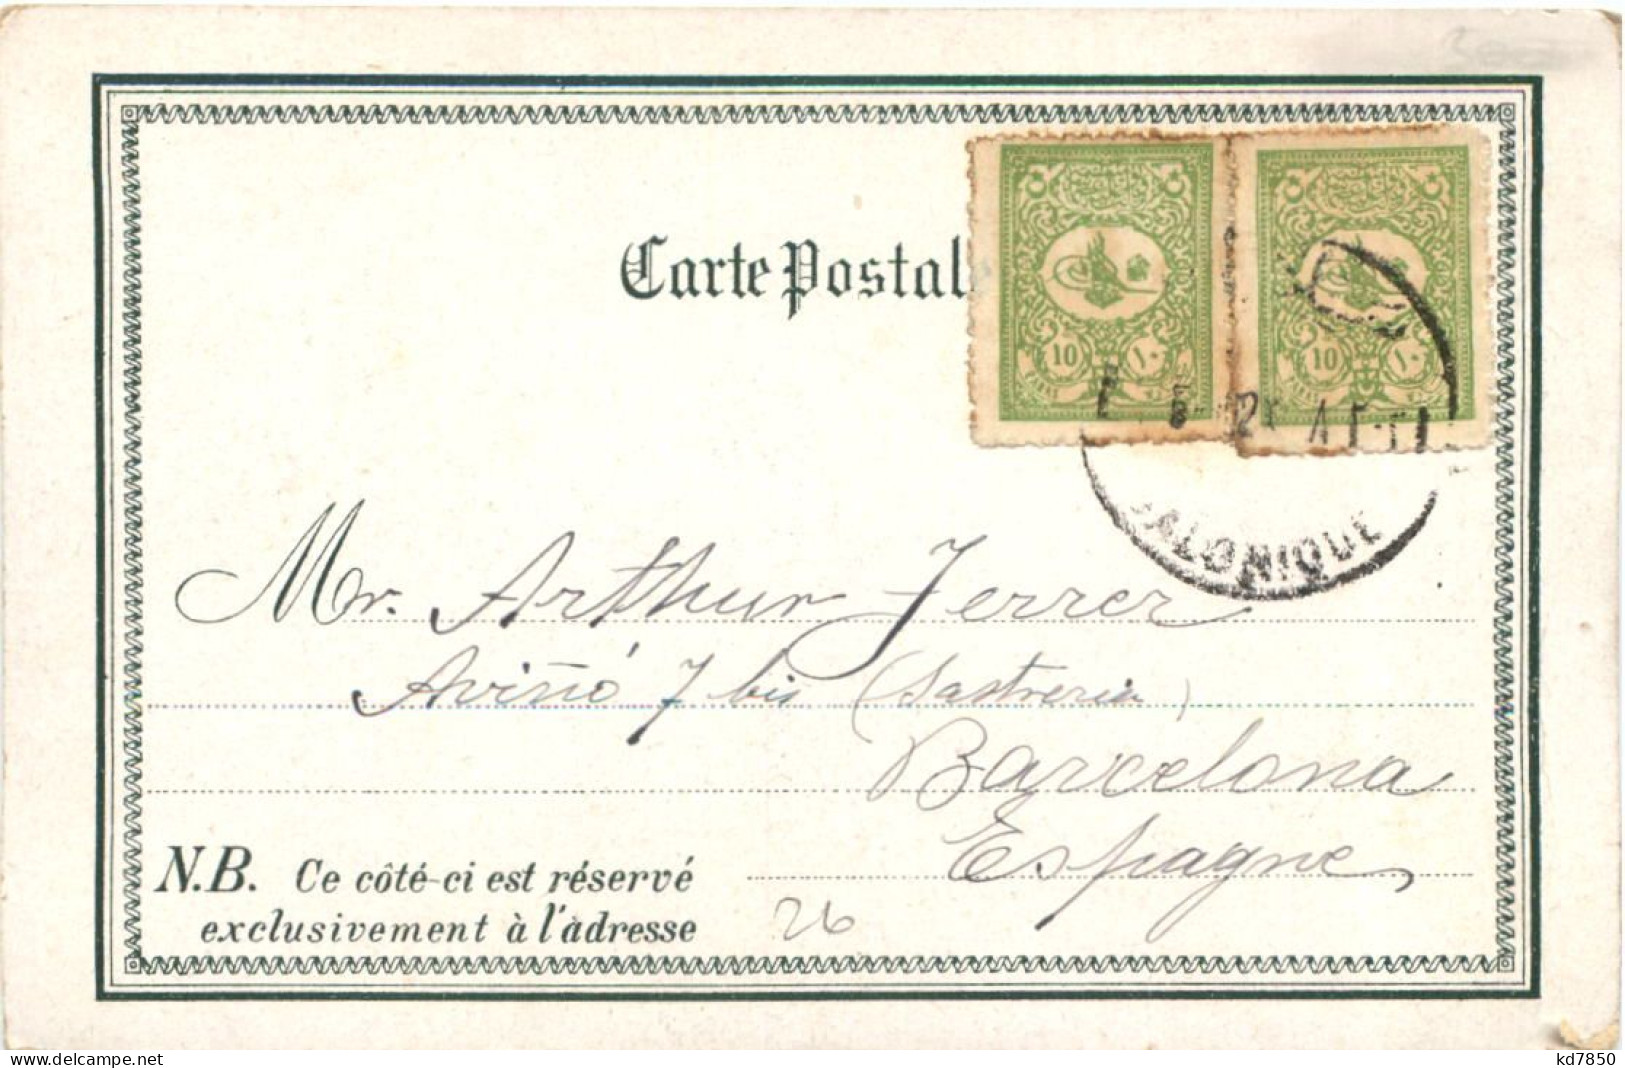 Carte Postal
10 ١٠
10 ١٠
SALONIQUE
Mr. Arthur Ferrer
Aviñó 7 bis (Sastreria)
Barcelona
Espagne
N.B. Ce côté-ci est réservé
exclusivement à l'adresse
26
delcampe.net
kd7850